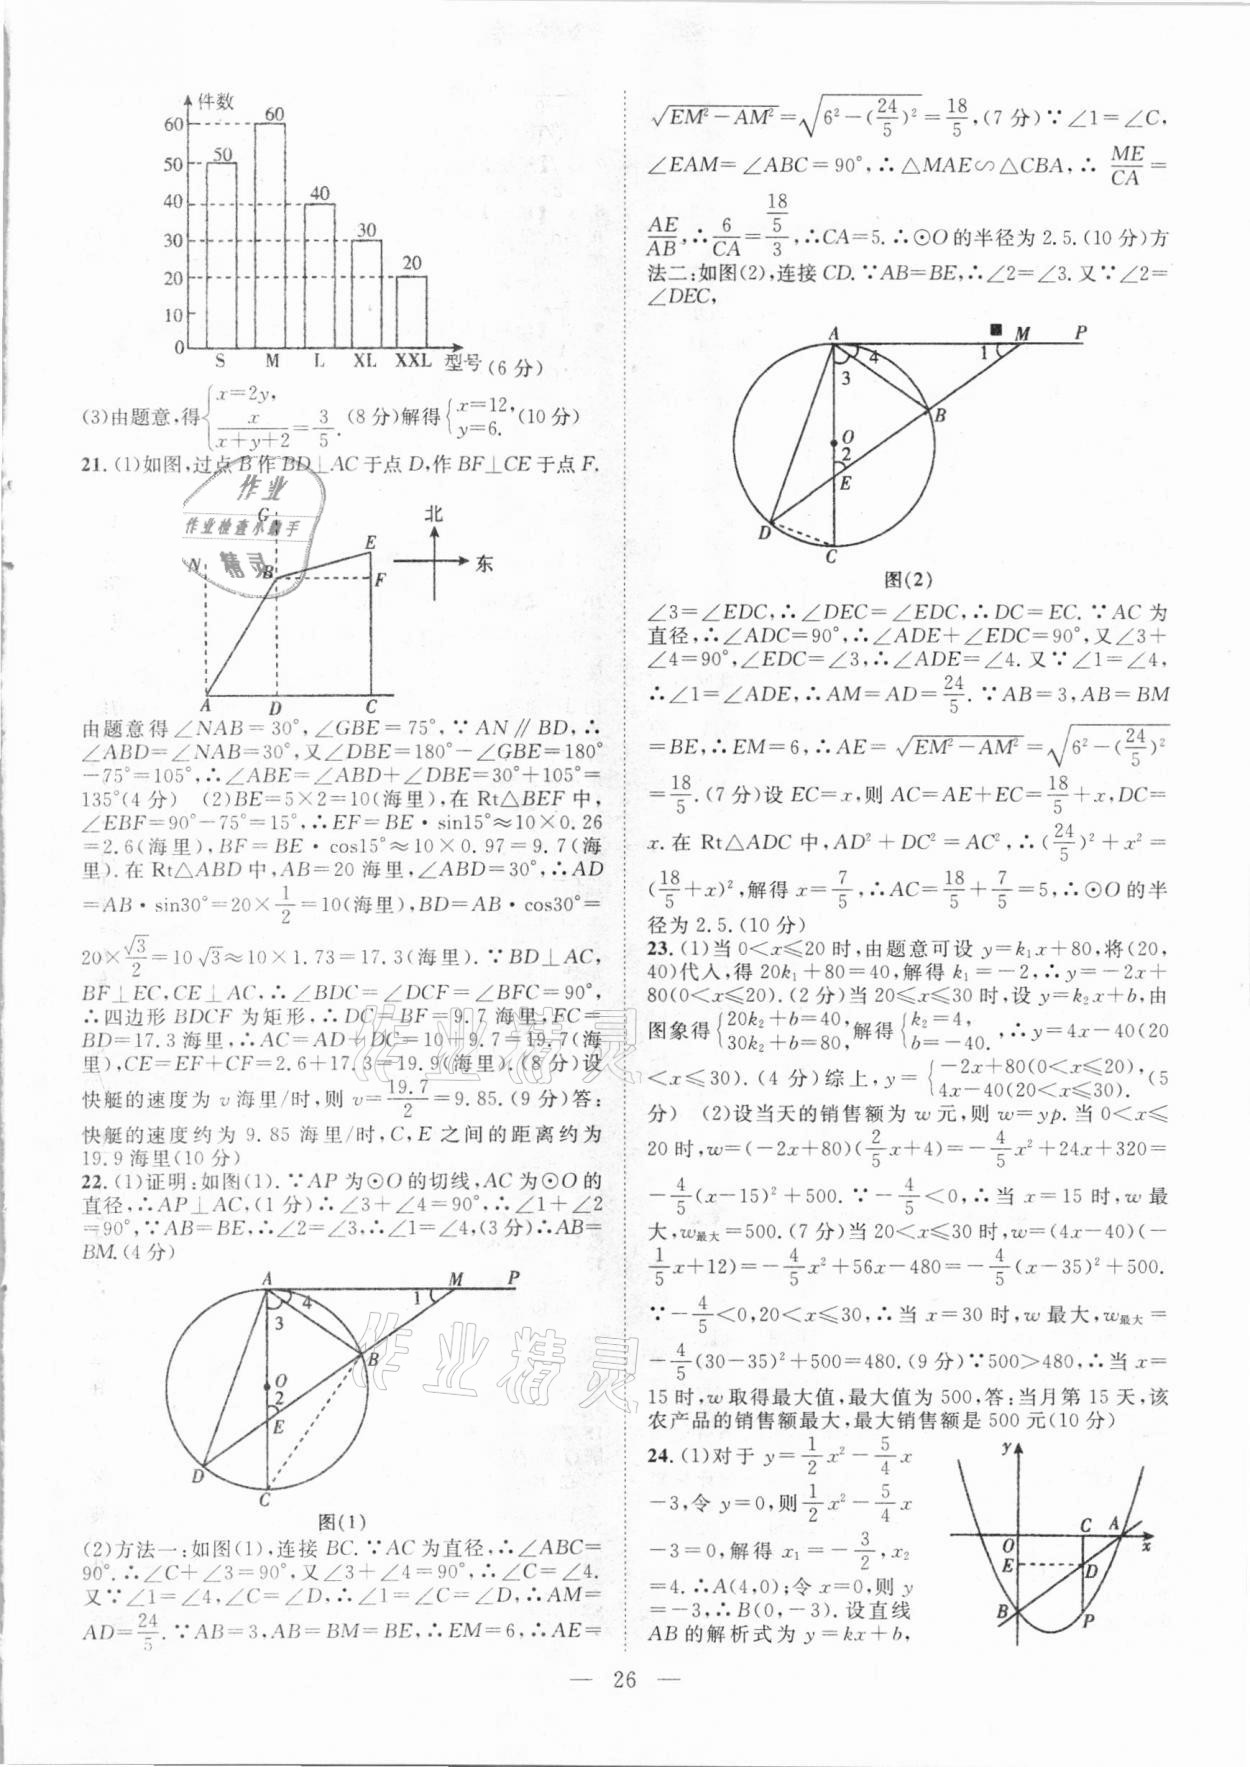 件数
60
50
40
30
20
10
0
50
60
40
30
20
S M L XL XXL 型号(6分)
(3)由题意,得{x=2y, x/(x+y+2)=3/5. (8分)解得{x=12, y=6. (10分)
21.(1)如图,过点B作BD⊥AC于点D,作BF⊥CE于点F.
作业
作业检查小助手
精灵
G
N
B
E
F
A
D
C
北
东
由题意得∠NAB=30°,∠GBE=75°,∵AN∥BD,∴
∠ABD=∠NAB=30°,又∠DBE=180°-∠GBE=180°
-75°=105°,∴∠ABE=∠ABD+∠DBE=30°+105°=
135°(4分) (2)BE=5×2=10(海里),在Rt△BEF中,
∠EBF=90°-75°=15°,∴EF=BE·sin15°≈10×0.26
=2.6(海里),BF=BE·cos15°≈10×0.97=9.7(海
里).在Rt△ABD中,AB=20海里,∠ABD=30°,∴AD
=AB·sin30°=20×1/2=10(海里),BD=AB·cos30°=
20×√3/2=10√3≈10×1.73=17.3(海里).∵BD⊥AC,
BF⊥EC,CE⊥AC,∴∠BDC=∠DCF=∠BFC=90°,
∴四边形BDCF为矩形,∴DC=BF=9.7海里,FC=
BD=17.3海里,∴AC=AD+DC=10+9.7=19.7(海
里),CE=EF+CF=2.6+17.3=19.9(海里).(8分)设
快艇的速度为v海里/时,则v=19.7/2=9.85.(9分)答:
快艇的速度约为9.85海里/时,C,E之间的距离约为
19.9海里(10分)
22.(1)证明:如图(1).∵AP为⊙O的切线,AC为⊙O的
直径,∴AP⊥AC,(1分)∴∠3+∠4=90°,∴∠1+∠2
=90°,∵AB=BE,∴∠2=∠3,∴∠1=∠4,(3分)∴AB=
BM.(4分)
A
M
P
1
4
3
B
O
2
E
D
C
图(1)
(2)方法一:如图(1),连接BC.∵AC为直径,∴∠ABC=
90°.∴∠C+∠3=90°,又∠3+∠4=90°,∴∠C=∠4.
又∵∠1=∠4,∠C=∠D,∴∠1=∠C=∠D,∴AM=
AD=24/5.∵AB=3,AB=BM=BE,∴EM=6,∴AE=
√(EM²-AM²)=√(6²-(24/5)²)=18/5,(7分)∵∠1=∠C,
∠EAM=∠ABC=90°,∴△MAE∽△CBA,∴ME/CA=
AE/AB,∴6/CA=(18/5)/3,∴CA=5.∴⊙O的半径为2.5.(10分)方
法二:如图(2),连接CD.∵AB=BE,∴∠2=∠3.又∵∠2=
∠DEC,
A
M
P
1
4
3
B
O
2
E
D
C
图(2)
∠3=∠EDC,∴∠DEC=∠EDC,∴DC=EC.∵AC为
直径,∴∠ADC=90°,∴∠ADE+∠EDC=90°,又∠3+
∠4=90°,∠EDC=∠3,∴∠ADE=∠4.又∵∠1=∠4,
∴∠1=∠ADE,∴AM=AD=24/5.∵AB=3,AB=BM
=BE,∴EM=6,∴AE=√(EM²-AM²)=√(6²-(24/5)²)
=18/5.(7分)设EC=x,则AC=AE+EC=18/5+x,DC=
x.在Rt△ADC中,AD²+DC²=AC²,∴(24/5)²+x²=
(18/5+x)²,解得x=7/5,∴AC=18/5+7/5=5,∴⊙O的半
径为2.5.(10分)
23.(1)当0<x≤20时,由题意可设y=k₁x+80,将(20,
40)代入,得20k₁+80=40,解得k₁=-2,∴y=-2x+
80(0<x≤20).(2分)当20≤x≤30时,设y=k₂x+b,由
图象得{20k₂+b=40, 30k₂+b=80, 解得{k₂=4, b=-40. ,∴y=4x-40(20
<x≤30).(4分)综上,y={-2x+80(0<x≤20), 4x-40(20<x≤30). (5
分) (2)设当天的销售额为w元,则w=yp.当0<x≤
20时,w=(-2x+80)(2/5x+4)=-4/5x²+24x+320=
-4/5(x-15)²+500.∵-4/5<0,∴当x=15时,w最
大,w最大=500.(7分)当20<x≤30时,w=(4x-40)(-
1/5x+12)=-4/5x²+56x-480=-4/5(x-35)²+500.
∵-4/5<0,20<x≤30,∴当x=30时,w最大,w最大=
-4/5(30-35)²+500=480.(9分)∵500>480,∴当x=
15时,w取得最大值,最大值为500,答:当月第15天,该
农产品的销售额最大,最大销售额是500元(10分)
24.(1)对于y=1/2x²-5/4x
-3,令y=0,则1/2x²-5/4x
-3=0,解得x₁=-3/2,x₂
=4.∴A(4,0);令x=0,则y
=-3,∴B(0,-3).设直线
AB的解析式为y=kx+b,
y
C
A
O
x
E
D
B
P
作业精灵
作业精灵
— 26 —